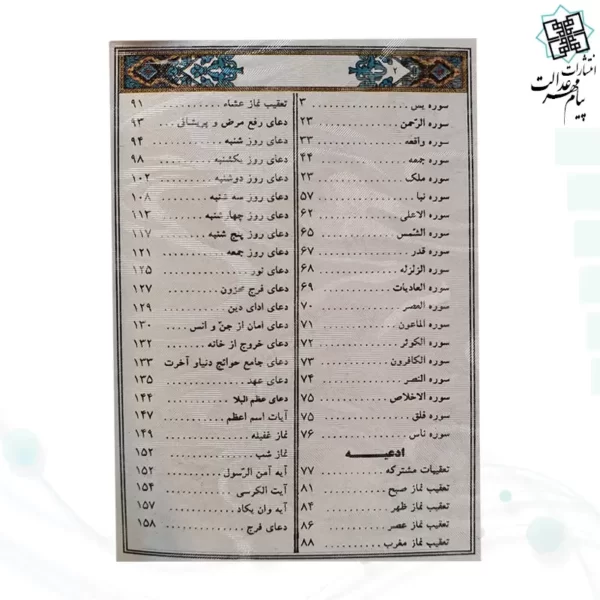 انتشارات
پیام مهر عدالت
۲
سوره یس ........... ۳
سوره الرّحمن ........... ۲۳
سوره واقعه ........... ۳۳
سوره جمعه ........... ۴۴
سوره ملک ........... ۲۳
سوره نبا ........... ۵۷
سوره الاعلی ........... ۶۲
سوره الشّمس ........... ۶۵
سوره قدر ........... ۶۷
سوره الزلزله ........... ۶۸
سوره العادیات ........... ۶۹
سوره العصر ........... ۷۰
سوره الماعون ........... ۷۱
سوره الکوثر ........... ۷۲
سوره الکافرون ........... ۷۳
سوره النصر ........... ۷۴
سوره الاخلاص ........... ۷۵
سوره فلق ........... ۷۵
سوره ناس ........... ۷۶
ادعیـــه
تعقیبات مشترکه ........... ۷۷
تعقیب نماز صبح ........... ۸۱
تعقیب نماز ظهر ........... ۸۴
تعقیب نماز عصر ........... ۸۶
تعقیب نماز مغرب ........... ۸۸
تعقیب نماز عشاء ........... ۹۱
دعای رفع مرض و پریشانی .. ۹۳
دعای روز شنبه ........... ۹۴
دعای روز یکشنبه ........... ۹۸
دعای روز دوشنبه ........... ۱۰۲
دعای روز سه شنبه ........... ۱۰۸
دعای روز چهارشنبه ........... ۱۱۲
دعای روز پنج شنبه ........... ۱۱۷
دعای روز جمعه ........... ۱۲۱
دعای نور ........... ۱۲۵
دعای فرج محزون ........... ۱۲۷
دعای ادای دین ........... ۱۲۹
دعای امان از جنّ و انس .... ۱۳۰
دعای خروج از خانه ........... ۱۳۲
دعای جامع حوائج دنیا و آخرت ۱۳۳
دعای عهد ........... ۱۳۵
دعای عظم البلا ........... ۱۴۴
آیات اسم اعظم ........... ۱۴۷
نماز غفیله ........... ۱۴۹
نماز شب ........... ۱۵۲
آیه آمن الرّسول ........... ۱۵۲
آیت الکرسی ........... ۱۵۴
آیه وان یکاد ........... ۱۵۷
دعای فرج ........... ۱۵۸